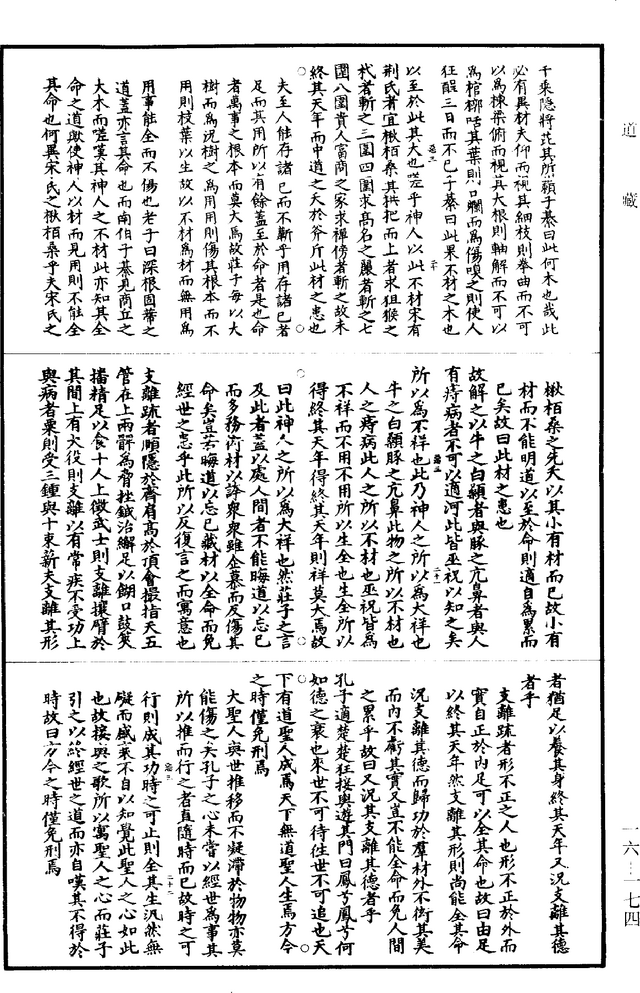 道藏
千乘隐將芘其所藾子綦曰此何木也哉此
必有異材夫仰而視其細枝則拳曲而不可
以爲棟梁俯而視其大根則軸解而不可以
爲棺槨咶其葉則口爛而爲傷嗅之則使人
狂酲三日而不已子綦曰此果不材之木也
以至於此其大也嗟乎神人以此不材宋有
荆氏者宜楸栢桑其拱把而上者求狙猴之
杙者斬之三圍四圍求高名之麗者斬之七
圍八圍貴人富商之家求禪傍者斬之故未
終其天年而中道之夭於斧斤此材之患也
夫至人能存諸己而不蘄乎用存諸己者
足而其用所以有餘蓋至於命者是也命
者萬事之根本而莫大焉故莊子每以大
樹而爲况樹之爲用用則傷其根本而不
用則枝葉以生故以不材爲材而無用爲
用事能全而不傷也老子曰深根固蔕之
道蓋亦言其命也而南伯子綦見商丘之
大本而嗟嘆其神人之不材此亦知其全
命之道歟使神人以材而見用則不能全
其命也何異宋氏之楸栢桑乎夫宋氏之
楸栢桑之先夭以其小有材而已故小有
材而不能明道以至於命則適自爲累而
已矣故曰此材之患也
故解之以牛之白顙者與豚之亢鼻者與人
有痔病者不可以適河此皆巫祝以知之矣
所以爲不祥也此乃神人之所以爲大祥也
牛之白顙豚之亢鼻此物之所以不材也
人之痔病此人之所以不材也巫祝皆爲
不祥而不用不用所以生全也生全所以
得終其天年得終其天年則祥莫大焉故
曰此神人之所以爲大祥也然莊子之言
及此者蓋以處人間者不能晦道以忘己
而多務衒材以誇衆衆雖企慕而反傷其
命矣豈若晦道以忘己藏材以全命而免
經世之患乎此所以反復言之而寓意也
支離疏者頤隱於齊肩高於頂會撮指天五
管在上兩髀爲脅挫鍼治繲足以餬口鼓筴
播精足以食十人上徵武士則支離攘臂於
其間上有大役則支離以有常疾不受功上
與病者粟則受三鍾與十束薪夫支離其形
者猶足以養其身終其天年又况支離其德
者乎
支離疏者形不正之人也形不正於外而
實自正於內足可以全其命也故曰由足
以終其天年然支離其形則尚能全其命
况支離其德而歸功於羣材外不衒其美
而內不虧其實又豈不能全命而免人間
之累乎故曰又况其支離其德者乎
孔子適楚楚狂接輿遊其門曰鳳兮鳳兮何
如德之衰也來世不可待往世不可追也天
下有道聖人成焉天下無道聖人生焉方今
之時僅免刑焉
大聖人與世推移而不凝滯於物物亦莫
能傷之矣孔子之心未嘗以經世爲事其
所以推而行之者直隨時而已故時之可
行則成其功時之可止則全其生汎然無
礙而感來不自以知覺此聖人之心如此
也故接輿之歌所以寓聖人之心而莊子
引之以終經世之道而亦自嘆其不得於
時故曰方今之時僅免刑焉
一六—一七四